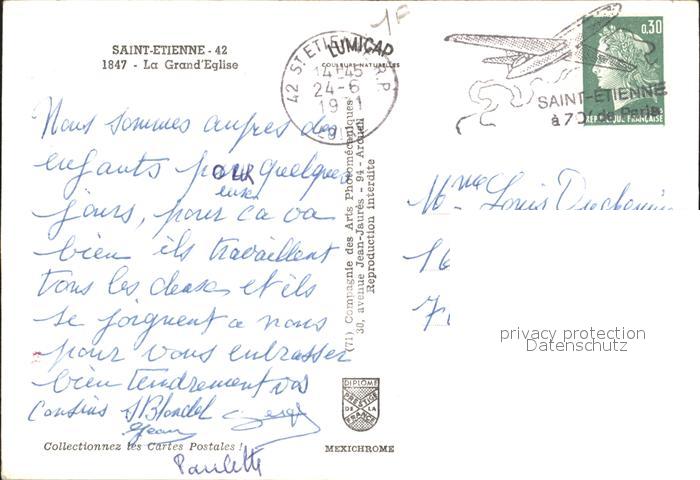 1F
SAINT-ETIENNE - 42
1847 - La Grand'Eglise
LUMICAP
COULEURS NATURELLES
42 ST ETIENNE R.P
14H45
24-6
0,30
SAINT-ETIENNE
à 70' de Paris
REPUBLIQUE FRANÇAISE
Nous sommes aupres des
enfants pour quelques
OUR
jours, pour ça va
bien ils travaillent
tous les deux et ils
se joignent a nous
pour vous embrasser
bien tendrement vos
Cousins Blondel
Jean
Paulette
(71) Compagnie des Arts Photomécaniques
30, avenue Jean-Jaurès - 94 - Arcueil
Reproduction Interdite
Mme Louis
16
7
privacy protection
Datenschutz
DIPLOME
PRESTIGE
DE LA
FRANCE
Collectionnez les Cartes Postales !
MEXICHROME